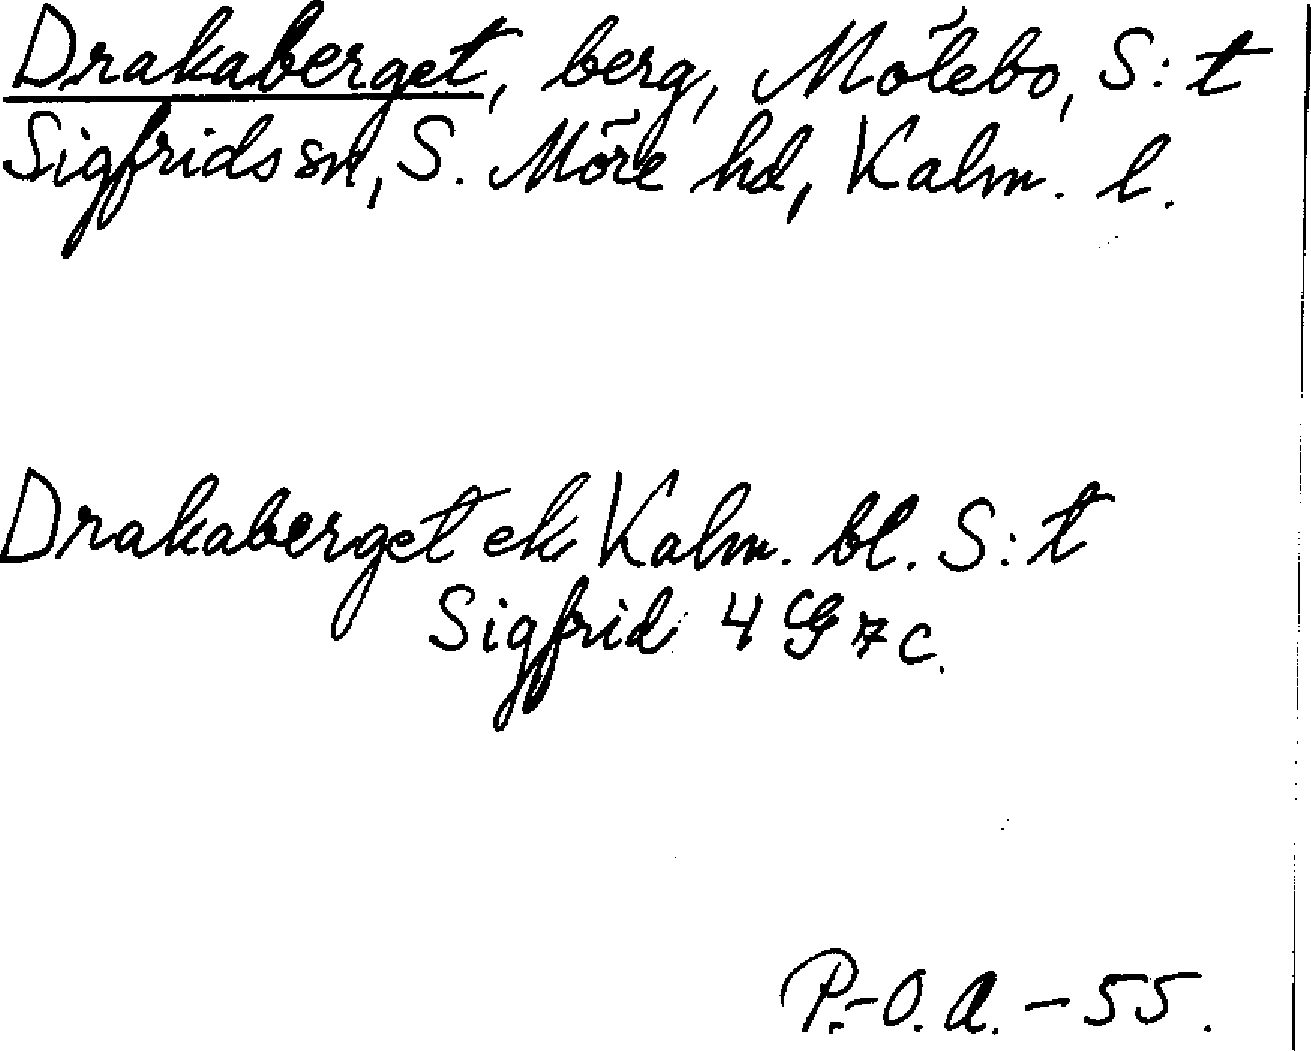 Drakaberget, berg, Mölebo, S:t
Sigfrids sn, S. Möre hd, Kalm. l.
Drakaberget ek Kalm. bl. S:t
Sigfrid 4 G 7 c.
P.-O. A. - 55.